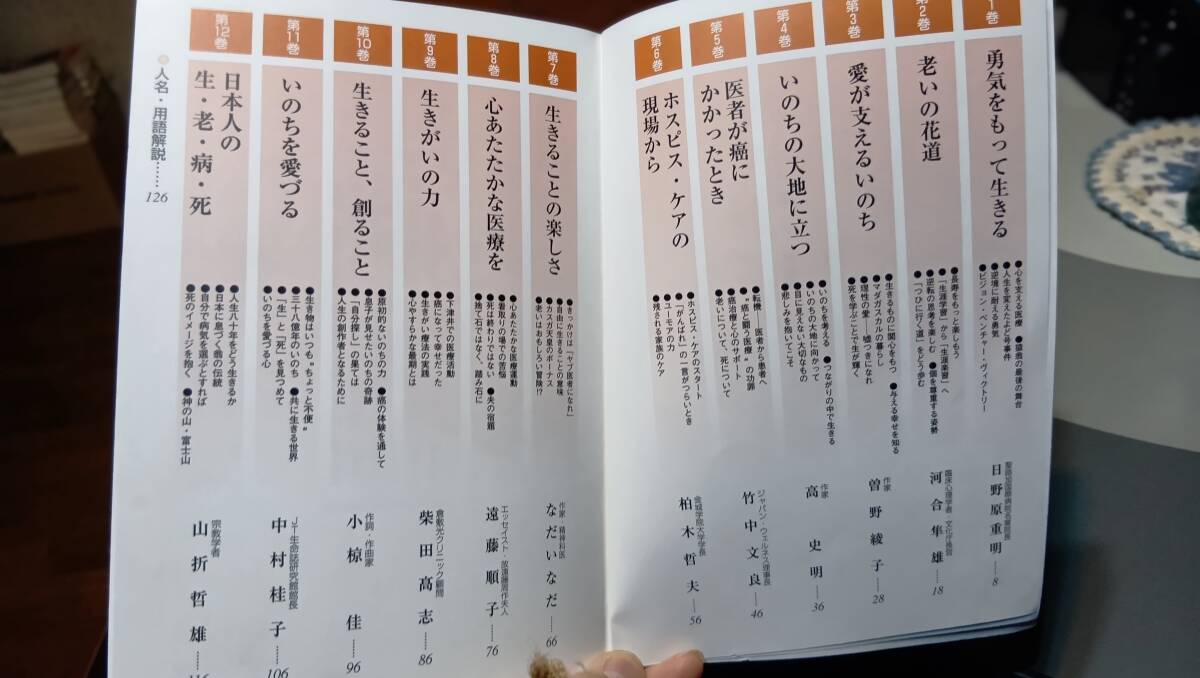 第1巻
勇気をもって生きる
●心を支える医療 ●猿翁の最後の舞台
●人生を変えたよど号事件
●逆境に耐える勇気
●ビジョン・ベンチャー・ヴィクトリー
聖路加国際病院名誉院長
日野原重明……8
第2巻
老いの花道
●長寿をもっと楽しもう
●「生涯学習」から「生涯楽習」へ
●逆転の思考を楽しむ ●個を尊重する姿勢
●「つひに行く道」をどう歩む
臨床心理学者・文化庁長官
河合隼雄……18
第3巻
愛が支えるいのち
●生きるものに関心をもつ ●与える幸せを知る
●マダガスカルの暮らし
●理性の愛―嘘つきになれ
●死を学ぶことで生が輝く
作家
曽野綾子……28
第4巻
いのちの大地に立つ
●いのちを考える ●つながりの中で生きる
●いのちの大地に向かって
●目に見えない大切なもの
●悲しみを抱いてこそ
作家
高史明……36
第5巻
医者が癌にかかったとき
●転機―医者から患者へ
●“癌と闘う医療”の功罪
●癌治療と心のサポート
●老いについて、死について
ジャパン・ウェルネス理事長
竹中文良……46
第6巻
ホスピス・ケアの現場から
●ホスピス・ケアのスタート
●「がんばれ」の一言がつらいとき
●ユーモアの力
●残される家族のケア
金城学院大学学長
柏木哲夫……56
第7巻
生きることの楽しさ
●きっかけは「ヤブ医者になれ」
●自由に生きることの意味
●カスガ天皇のボーナス
●老いはおもしろい冒険!?
作家・精神科医
なだいなだ……66
第8巻
心あたたかな医療を
●心あたたかな医療運動
●看取りの場での苦悩
●死は終りでない ●夫の宿題
●捨て石ではなく、踏み石に
エッセイスト・故遠藤周作夫人
遠藤順子……76
第9巻
生きがいの力
●下津井での医療活動
●癌になって幸せだった
●生きがい療法の実践
●心やすらかな最期とは
倉敷光クリニック顧問
柴田高志……86
第10巻
生きること、創ること
●原初的ないのちの力 ●癌の体験を通して
●息子が見せたいのちの奇跡
●「自分探し」の果ては
●人生の創作者となるために
作詞・作曲家
小椋佳……96
第11巻
いのちを愛づる
●生き物はいつも“ちょっと不便”
●三十八億年のいのち ●共に生きる世界
●「生」と「死」を見つめて
●いのちを愛づる心
JT生命誌研究館館長
中村桂子……106
第12巻
日本人の生・老・病・死
●人生八十年をどう生きるか
●日本に息づく翁の伝統
●自分で病気を選ぶとすれば
●死のイメージを抱く ●神の山・富士山
宗教学者
山折哲雄……116
●人名・用語解説……126